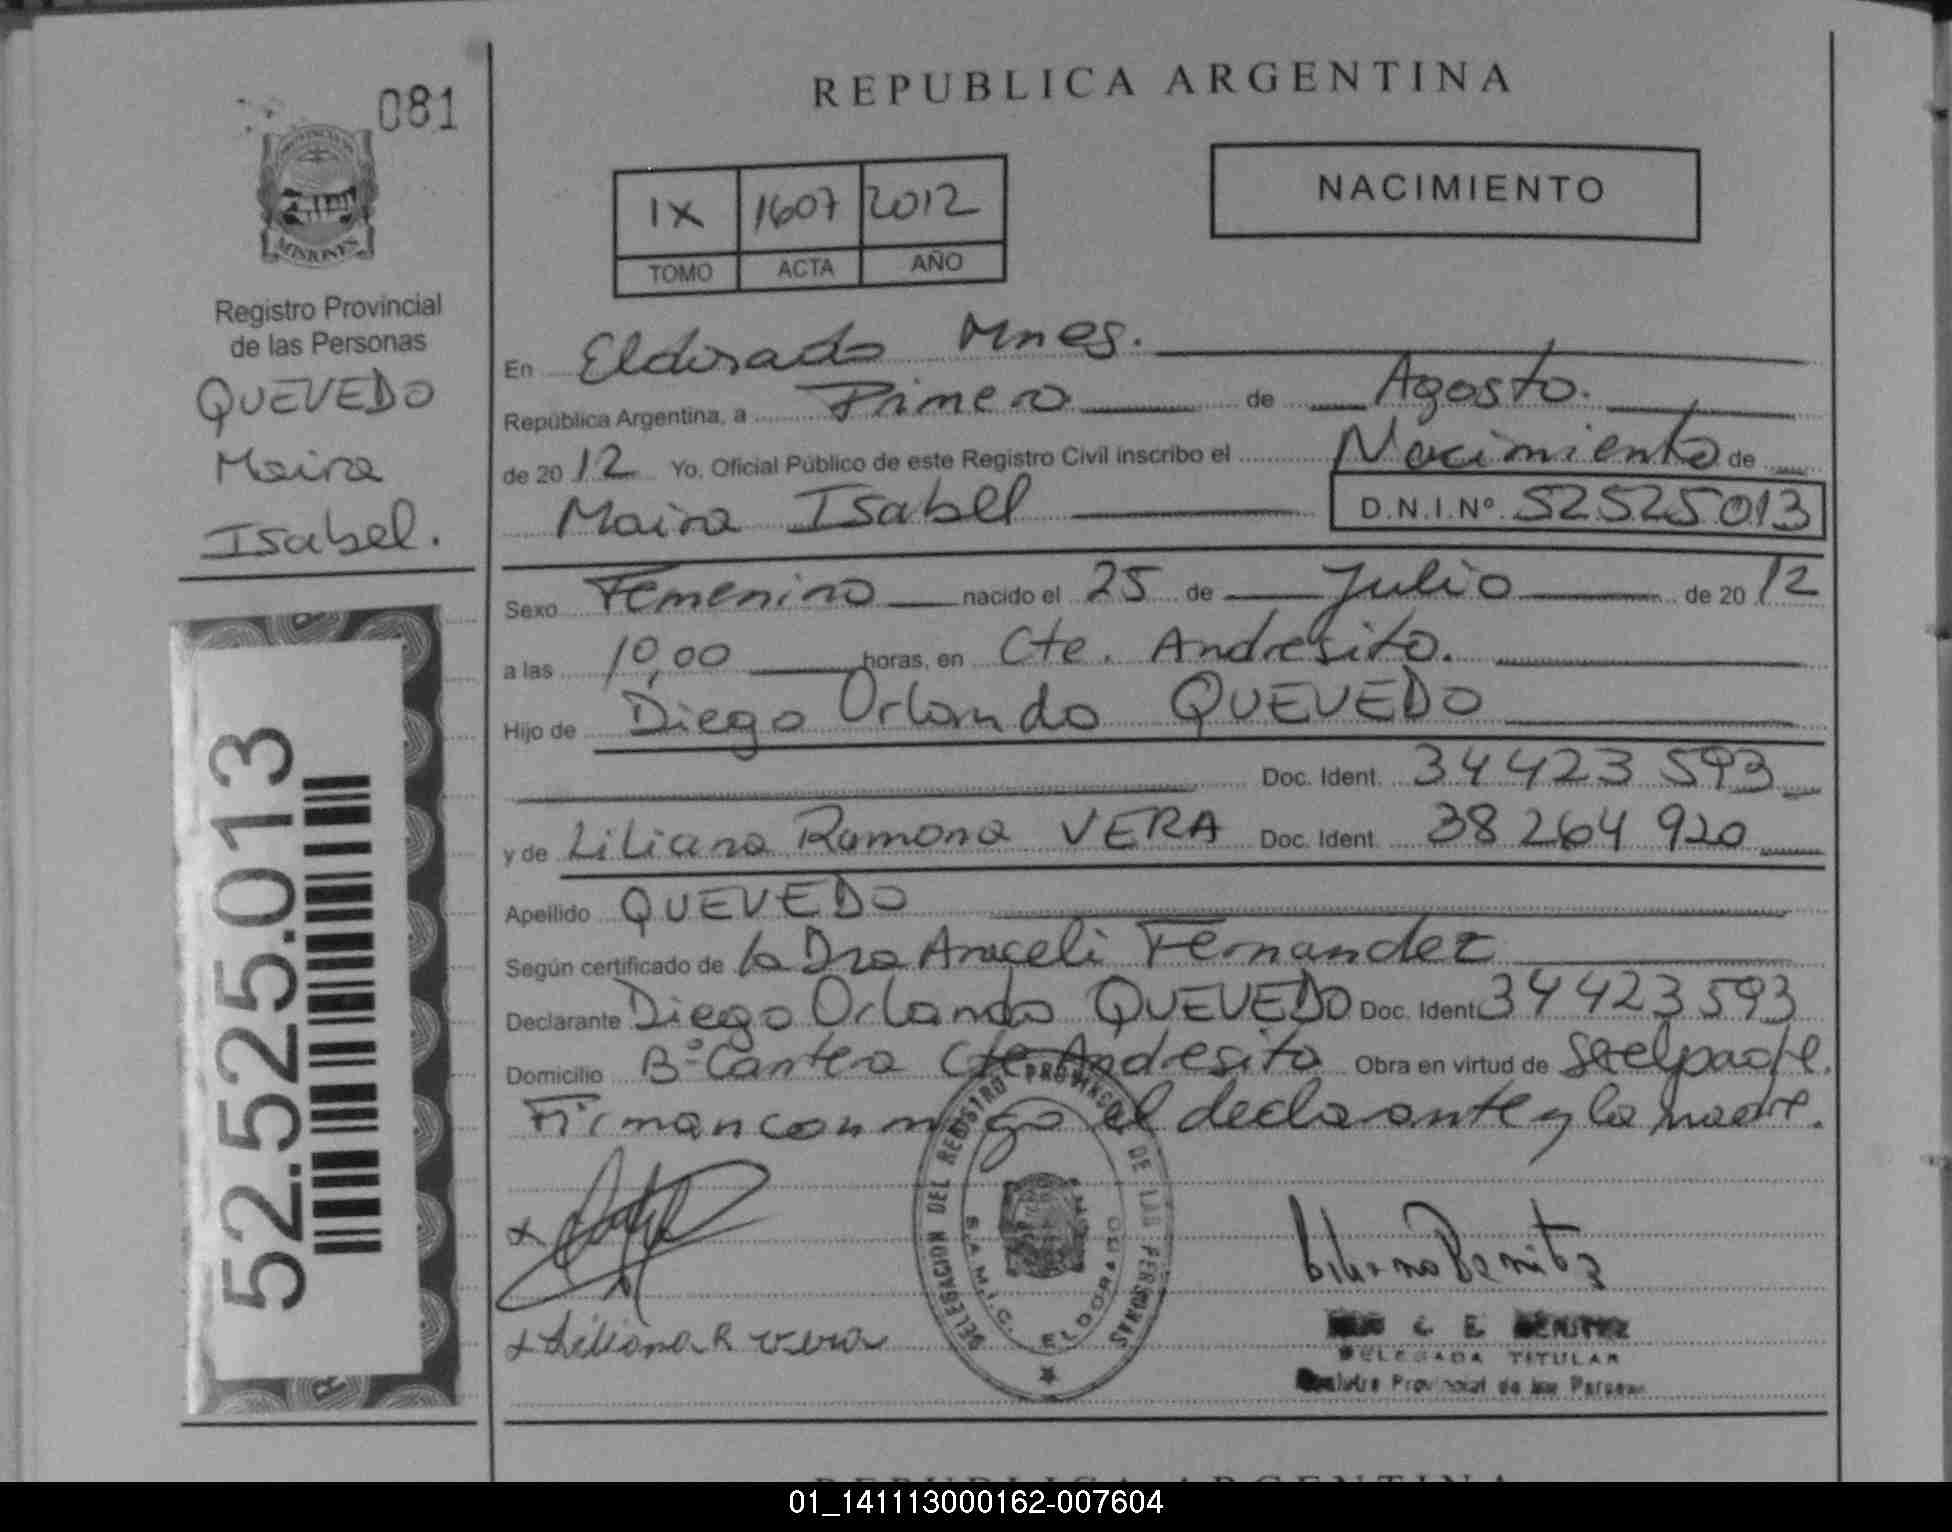 081
REPUBLICA ARGENTINA
NACIMIENTO
IX 1607 2012
TOMO ACTA AÑO
MISIONES
Registro Provincial
de las Personas
QUEVEDO
Maira
Isabel.
En Eldorado Mnes.
República Argentina, a Primero de Agosto.
de 2012 Yo, Oficial Público de este Registro Civil inscribo el Nacimiento de
Maira Isabel D.N.I.Nº 52525013
Sexo Femenino nacido el 25 de Julio de 2012
a las 10,00 horas, en Cte. Andresito.
Hijo de Diego Orlando QUEVEDO
Doc. Ident. 34423593
y de Liliana Ramona VERA Doc. Ident. 38264920
Apellido QUEVEDO
Según certificado de la Dra Araceli Fernandez
Declarante Diego Orlando QUEVEDO Doc. Ident. 34423593
Domicilio Bº Cantera Cte Andresito Obra en virtud de
Firman conmigo el declarante y la madre.
52.525.013
DELEGACION DEL REGISTRO PROVINCIAL DE LAS PERSONAS
S.A.M.I.C. ELDORADO
x Liliana R vera
C. E. BENITEZ
DELEGADA TITULAR
Registro Provincial de las Personas
REPUBLICA ARGENTINA
01_141113000162-007604